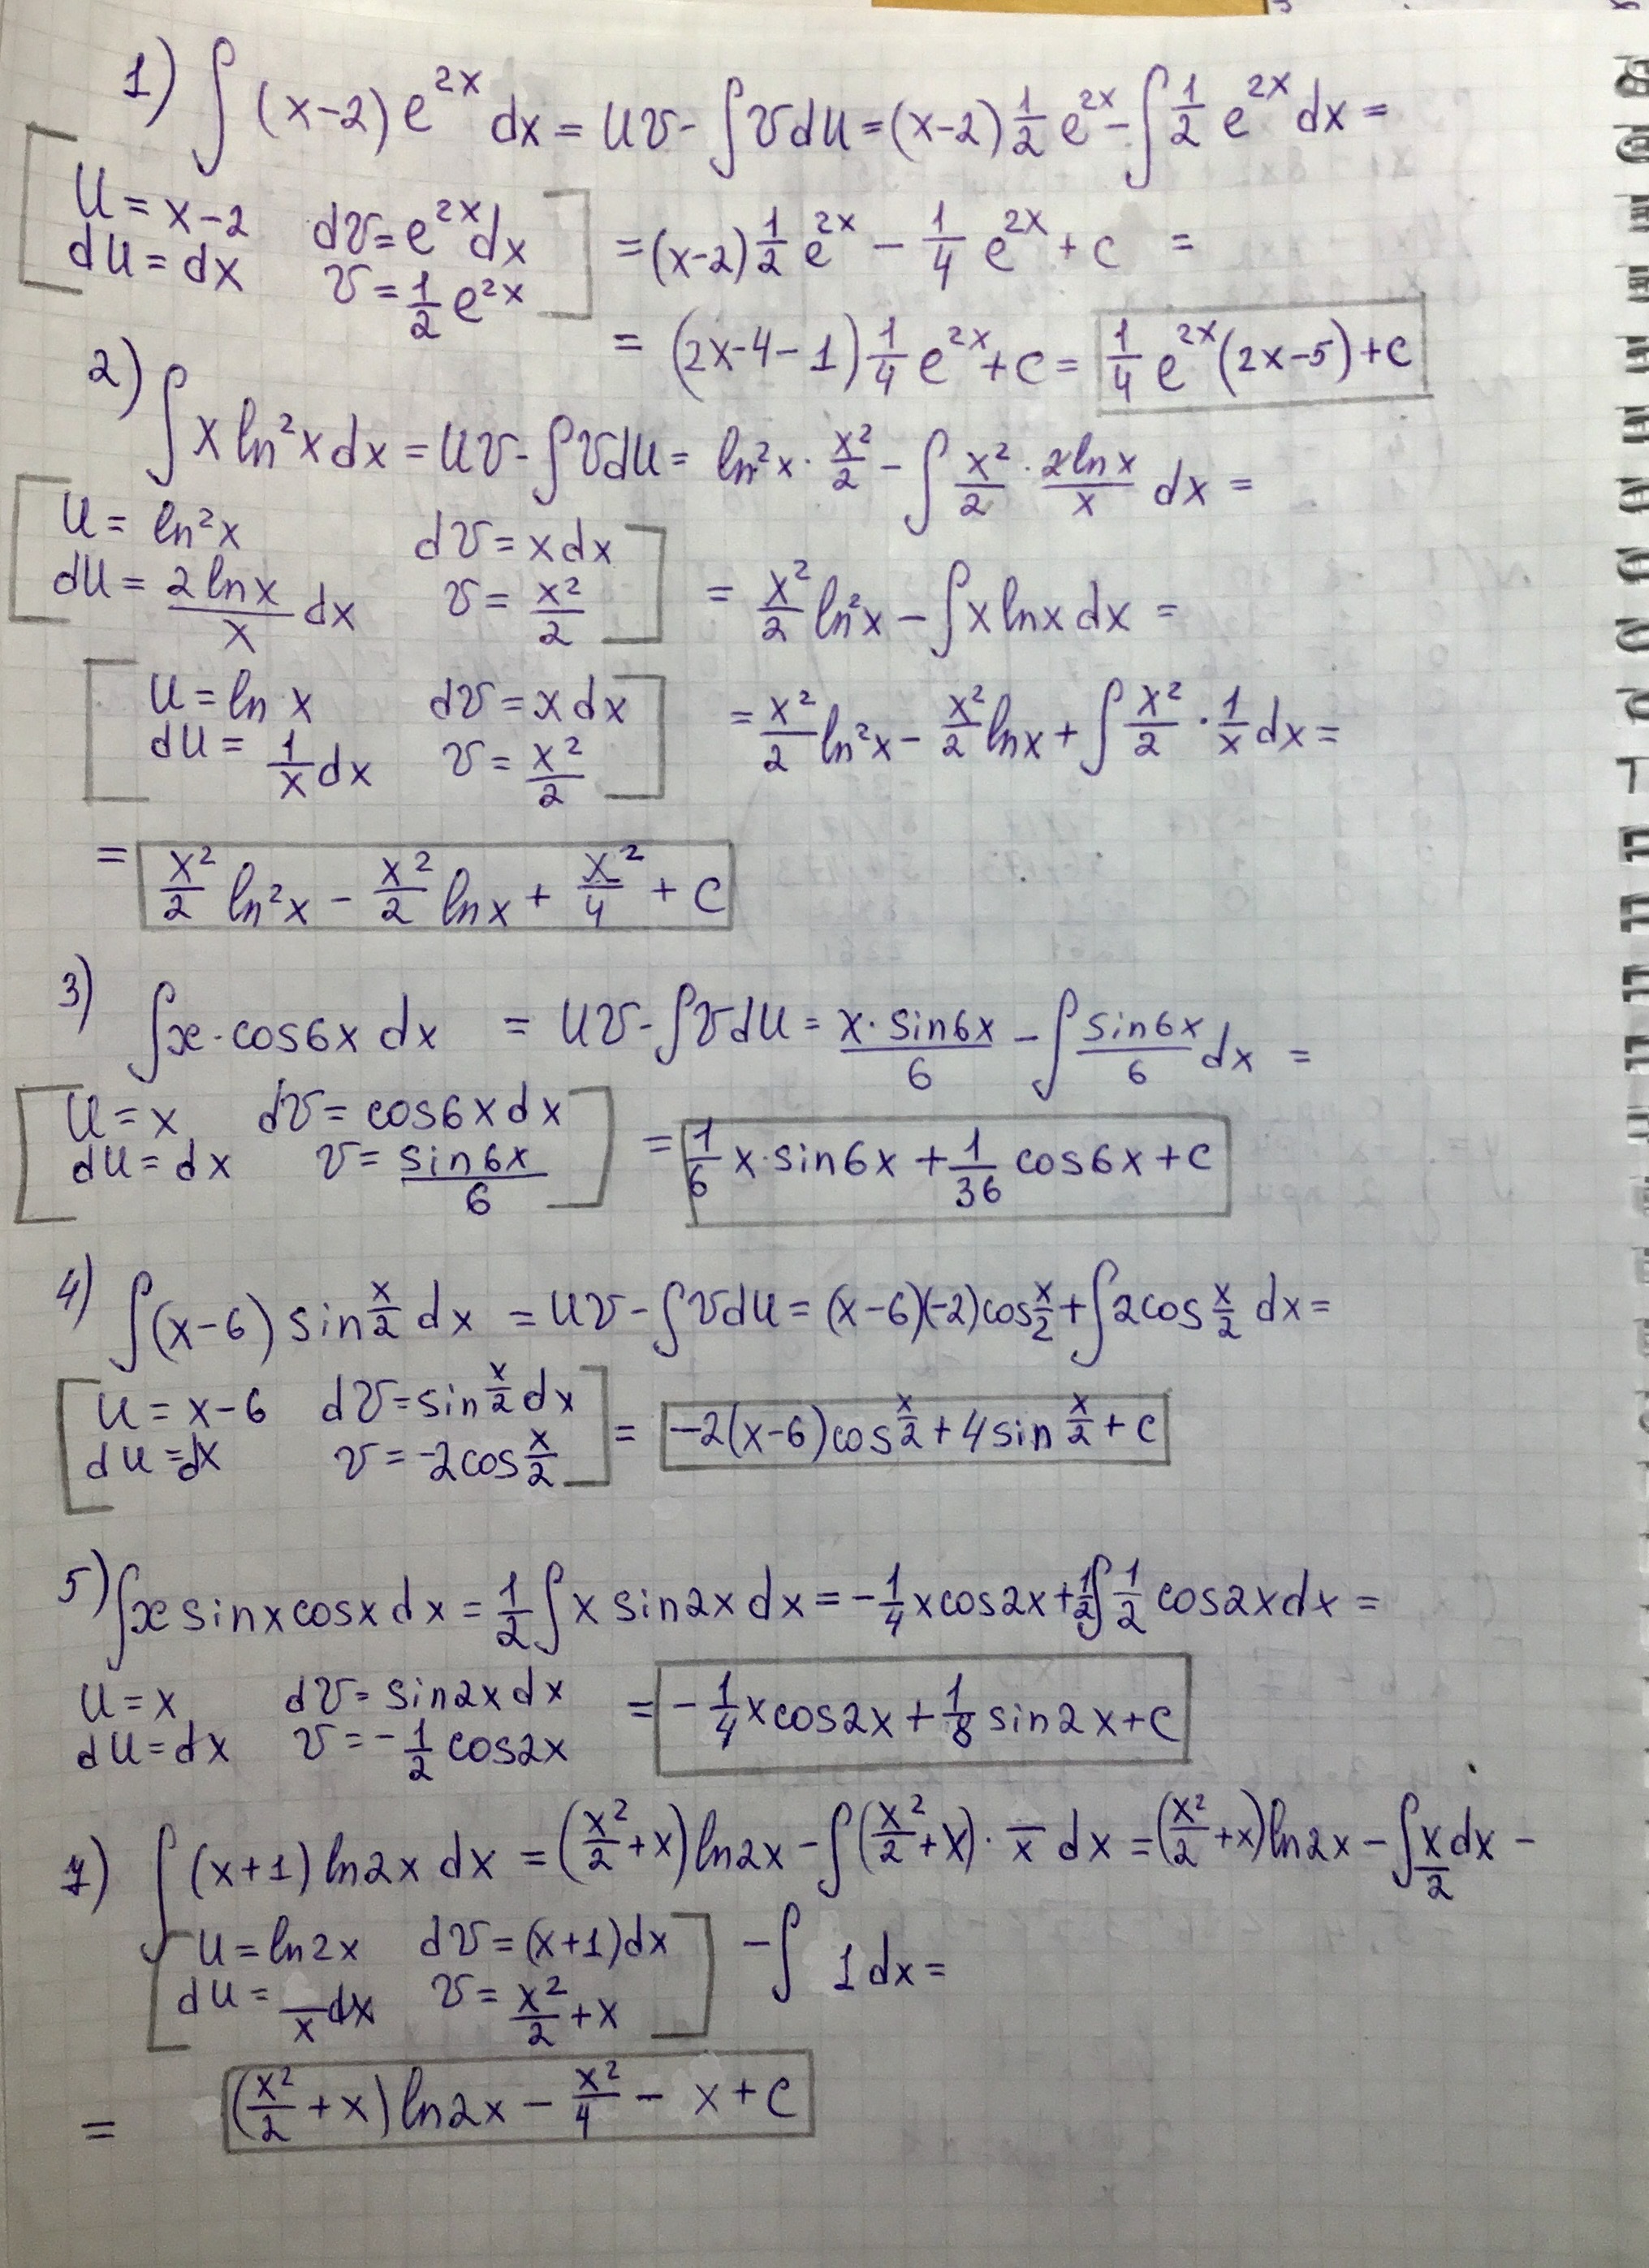 1) ∫ (x-2) e^{2x} dx = uv - ∫ v du = (x-2) \frac{1}{2} e^{2x} - ∫ \frac{1}{2} e^{2x} dx =
[ u = x-2 dv = e^{2x} dx
du = dx v = \frac{1}{2} e^{2x} ]
= (x-2) \frac{1}{2} e^{2x} - \frac{1}{4} e^{2x} + c =
= (2x-4-1) \frac{1}{4} e^{2x} + c = \frac{1}{4} e^{2x} (2x-5) + c
2) ∫ x ln²x dx = uv - ∫ v du = ln²x · \frac{x²}{2} - ∫ \frac{x²}{2} · \frac{2 ln x}{x} dx =
[ u = ln²x dv = x dx
du = \frac{2 ln x}{x} dx v = \frac{x²}{2} ]
= \frac{x²}{2} ln²x - ∫ x ln x dx =
[ u = ln x dv = x dx
du = \frac{1}{x} dx v = \frac{x²}{2} ]
= \frac{x²}{2} ln²x - \frac{x²}{2} ln x + ∫ \frac{x²}{2} · \frac{1}{x} dx =
= \frac{x²}{2} ln²x - \frac{x²}{2} ln x + \frac{x²}{4} + c
3) ∫ x · cos6x dx = uv - ∫ v du = \frac{x · sin6x}{6} - ∫ \frac{sin6x}{6} dx =
[ u = x dv = cos6x dx
du = dx v = \frac{sin6x}{6} ]
= \frac{1}{6} x · sin6x + \frac{1}{36} cos6x + c
4) ∫ (x-6) sin \frac{x}{2} dx = uv - ∫ v du = (x-6)(-2) cos \frac{x}{2} + ∫ 2 cos \frac{x}{2} dx =
[ u = x-6 dv = sin \frac{x}{2} dx
du = dx v = -2 cos \frac{x}{2} ]
= -2(x-6) cos \frac{x}{2} + 4 sin \frac{x}{2} + c
5) ∫ x sinx cosx dx = \frac{1}{2} ∫ x sin2x dx = -\frac{1}{4} x cos2x + \frac{1}{2} ∫ \frac{1}{2} cos2x dx =
u = x dv = sin2x dx
du = dx v = -\frac{1}{2} cos2x
= -\frac{1}{4} x cos2x + \frac{1}{8} sin2x + c
7) ∫ (x+1) ln2x dx = (\frac{x²}{2} + x) ln2x - ∫ (\frac{x²}{2} + x) · \frac{}{x} dx = (\frac{x²}{2} + x) ln2x - ∫ \frac{x}{2} dx -
[ u = ln2x dv = (x+1) dx
du = \frac{}{x} dx v = \frac{x²}{2} + x ]
- ∫ 1 dx =
= (\frac{x²}{2} + x) ln2x - \frac{x²}{4} - x + c